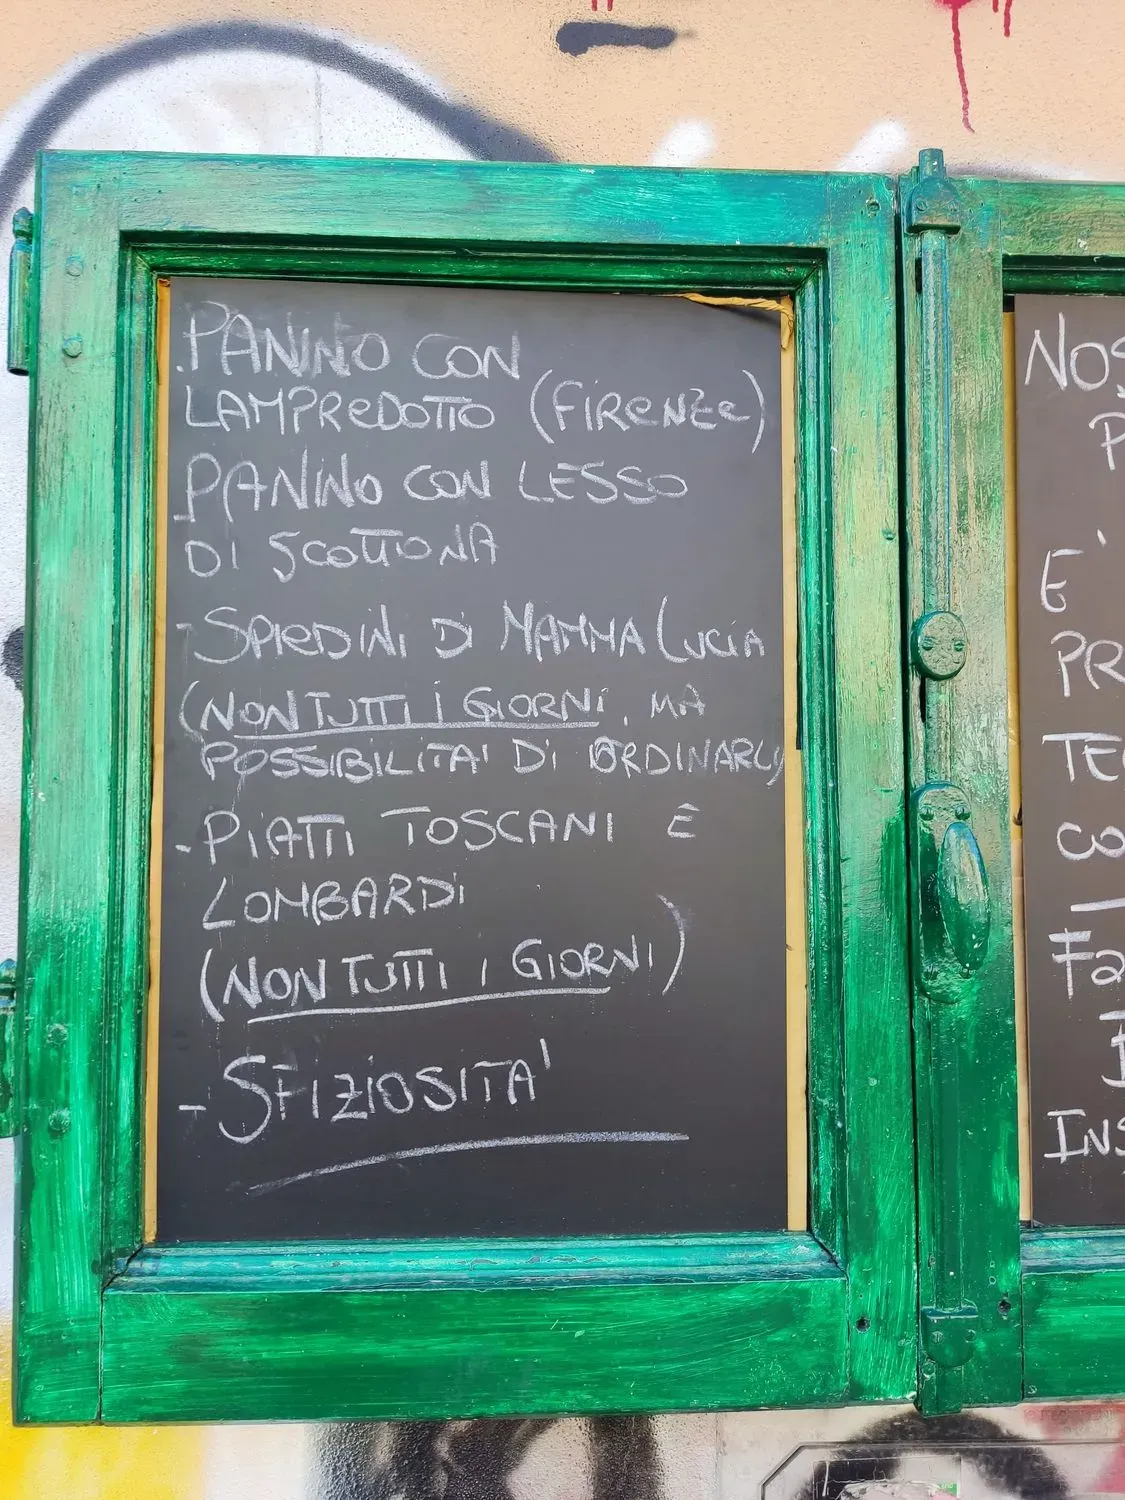 .PANINO CON
LAMPREDOTTO (FIRENZE)
PANINO CON LESSO
DI SCOTTONA
- SPIEDINI DI MAMMA LUCIA
(NON TUTTI I GIORNI, MA
POSSIBILITA' DI ORDINARLI)
- PIATTI TOSCANI E
LOMBARDI
(NON TUTTI I GIORNI)
- SFIZIOSITA'
NOS
P
E'
PR
TE
CO
—
Fa
I
INS